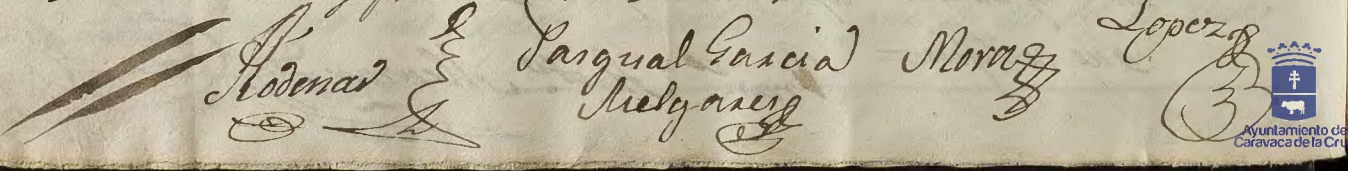 Rodenas
Pasqual Garcia
Melgares
Mora
Lopez
Ayuntamiento de
Caravaca de la Cru